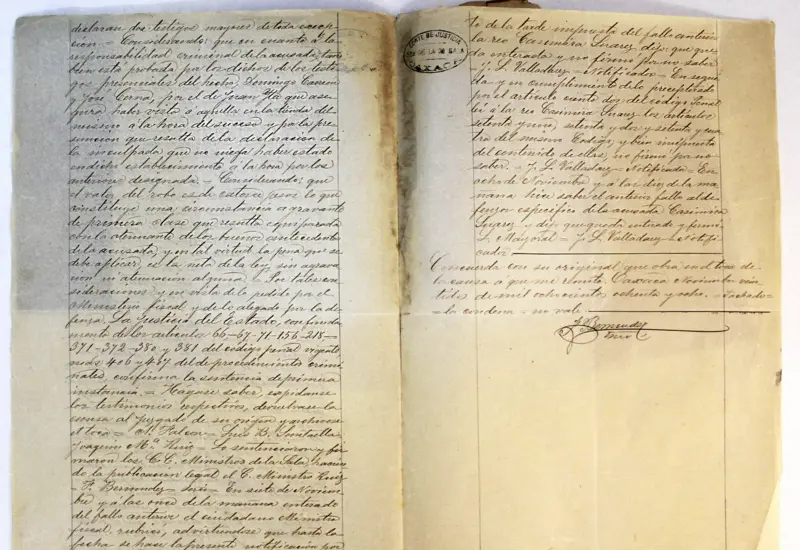 declaran dos testigos mayores de toda excep-
cion. = Considerando: que en cuanto á la
responsabilidad criminal de la acusada, tam-
bien está probada por los dichos de los testi-
gos presenciales del hecho Domingo
y José Cerna, por el de que ase-
gura haber visto á aquella en la tienda del
mismo á la hora del suceso y por la pre-
suncion que resulta de la declaracion de
la inculpada que no niega haber estado
en dicho establecimiento á la hora por los
anteriores designada. = Considerando: que
el valor del robo es de catorce pesos lo que
constituye una circunstancia agravante
de primera clase que resulta equiparada
con la atenuante de los buenos antecedentes
de la acusada, y en tal virtud la pena que se
debe aplicar, es la neta de la ley sin agrava-
cion ni atenuacion alguna. = Por tales con-
sideraciones y en vista de lo pedido por el
Ministerio fiscal y de lo alegado por la de-
fensa. La Justicia del Estado, con funda-
mento de los artículos 66-67-71-156-218-
371-372-380 y 381 del código penal vigente
406 y 407 del de procedimientos crimi-
nales, confirma la sentencia de primera
instancia. = Hágase saber, expídanse
los testimonios respectivos, devuélvase la
causa al juzgado de su origen y archívese
el toca = Luis B. Santaella
Joaquin Mª = Lo sentenciaron y fir-
maron los CC. Ministros de la Sala,
de la publicacion legal el C. Ministro Ruiz
= F. Bermudez = Srio = En siete de Noviem-
bre y á las once de la mañana enterado
del fallo anterior el ciudadano Ministro
fiscal, rubricó, advirtiéndose que hasta la
fecha se hace la presente notificacion por
CORTE DE JUSTICIA
OAXACA
te de la tarde impuesta del fallo anterior
la reo Casimira Suarez dijo: que que-
da enterada y no firmó por no saber
J. L. Valladarez = Notificador = En segui-
da y en cumplimiento de lo preceptuado
por el artículo ciento dos del código Penal
leí á la reo Casimira Suarez los artículos
setenta y uno, setenta y dos y setenta y cua-
tro del mismo Código, y bien impuesta
del contenido de ellos, no firmó por no
saber. = J. L. Valladarez = Notificador = En
ocho de Noviembre y á las diez de la ma-
ñana hice saber el anterior fallo al de-
fensor específico de la acusada Casimira
Suarez y dijo: que queda enterado y firmó
L. Mayoral = J. L. Valladarez = Notifi-
cador
Concuerda con su original que obra en el toca de
la causa á que me remito. Oaxaca Noviembre vein-
tidos de mil ochocientos ochenta y ocho. = Tachado=
= la condena = no vale.
F. Bermudez
Srio